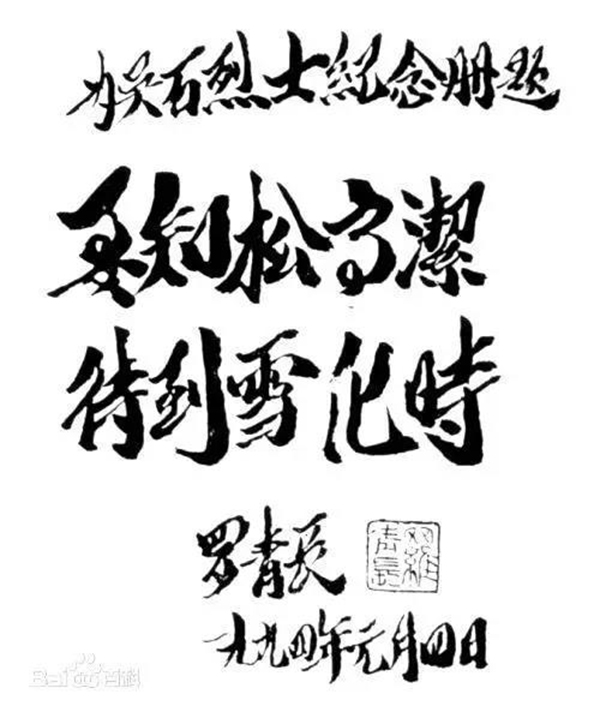 为吴石烈士纪念册题
要知松高潔
待到雪化時
罗青长
羅青長
一九九四年元月四日
Bai百科